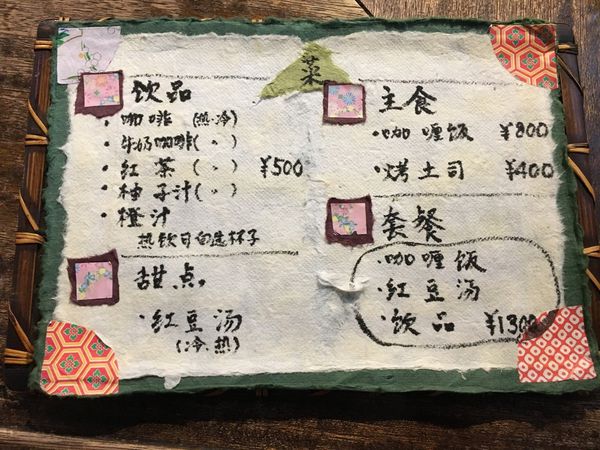 菜
饮品
・咖啡 (热・冷)
・牛奶咖啡(〃)
・红茶(〃) ¥500
・柚子汁(〃)
・橙汁
热饮可自选杯子
甜点
・红豆汤
(冷・热)
主食
・咖喱饭 ¥800
・烤土司 ¥400
套餐
・咖喱饭
・红豆汤
・饮品 ¥1300